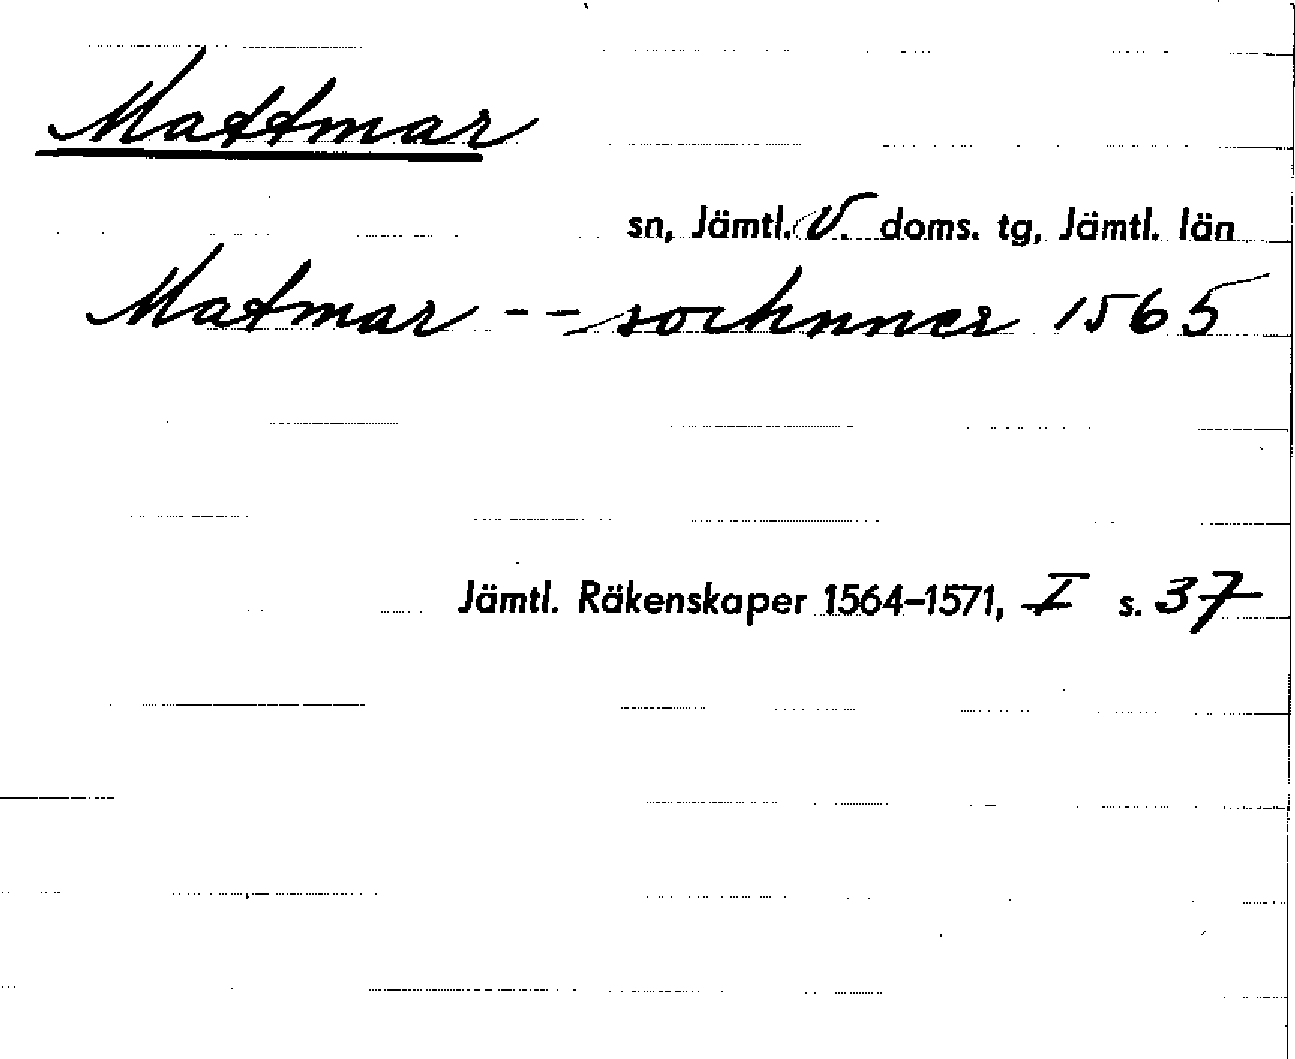 Mattmar
sn, Jämtl. V. doms. tg, Jämtl. län
Matmar -- sochnner 1565
Jämtl. Räkenskaper 1564–1571, I s. 37